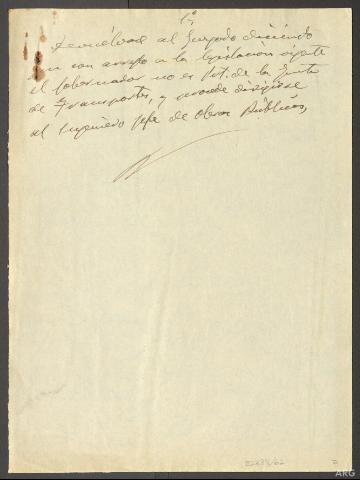 Devuélvase al Juzgado diciendo
que con arreglo a la legislación vigente
el Gobernador no es Pte. de la Junta
de Transportes, y procede dirigirse
al Ingeniero Jefe de Obras Públicas,
ARG